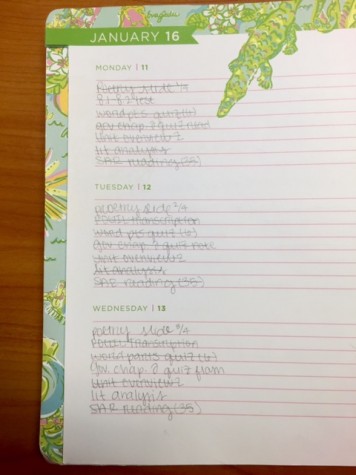 JANUARY 16
MONDAY | 11
poetry slide 1/4
8.1-8.2 test
word pts quiz (6)
gov chap. 8 quiz read
unit overview 2
lit analysis
SAR reading (35)
TUESDAY | 12
poetry slide 2/4
transcription
word pts quiz (6)
gov chap. 8 quiz note
unit overview 2
lit analysis
SAR reading (35)
WEDNESDAY | 13
poetry slide 3/4
transcription
word parts quiz (6)
gov. chap. 8 quiz flam
unit overview 2
lit analysis
SAR reading (35)